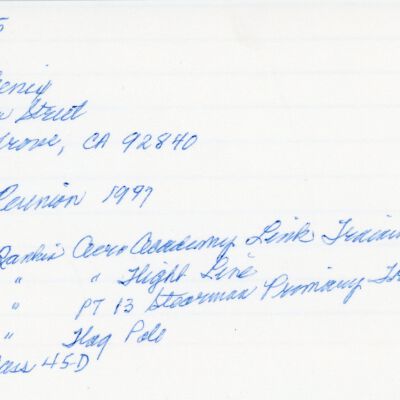 5
Street
Grove, CA 92840
Reunion 1997
Rankin Aero Academy Link Train
" " Flight Line
" PT 13 Stearman Primary Tr
" Flag Pole
ass 45-D